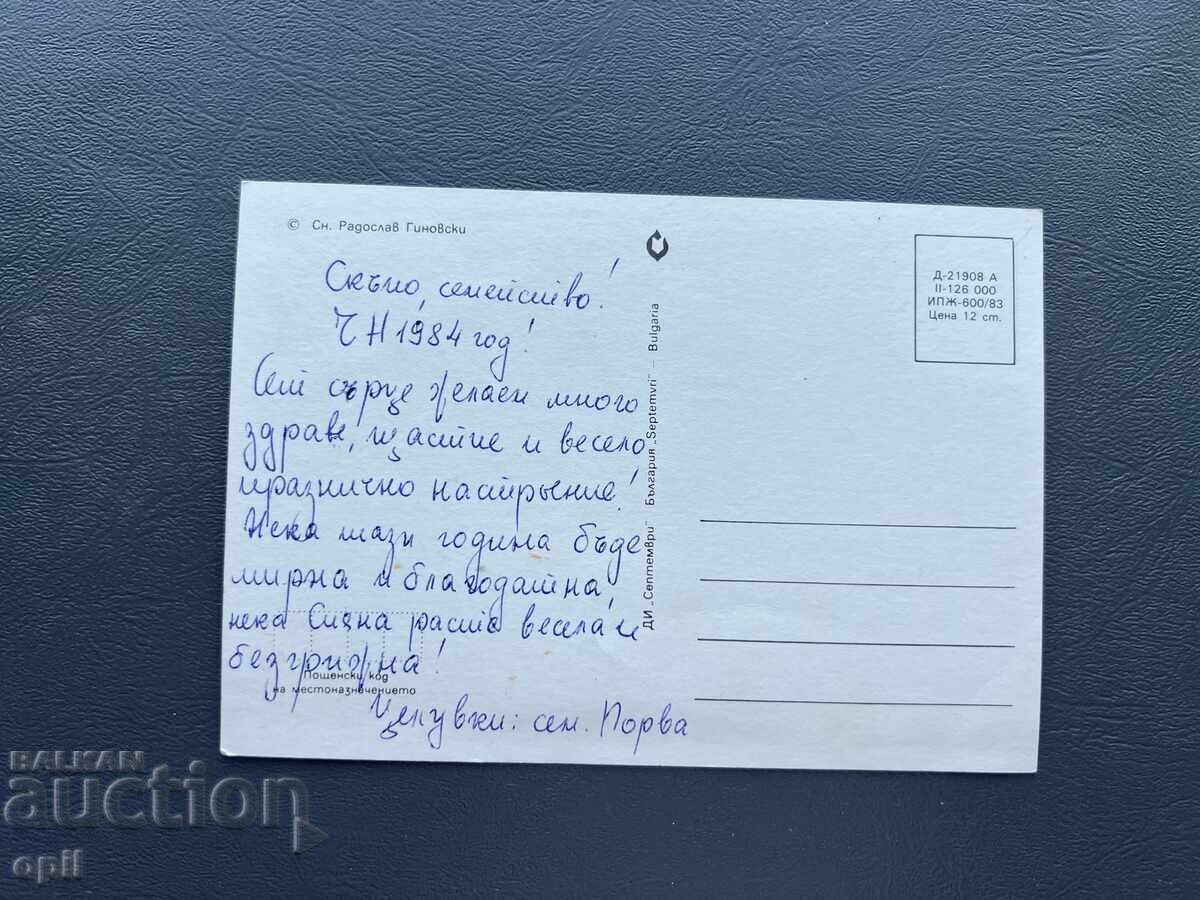 © Сн. Радослав Гиновски
Скъпо, семейство!
ЧН 1984 год!
сърце желаем много
здраве, щастие и весело
празнично настроение!
Нека тази година бъде
мирна и благодатна,
нека Сияна расте весела и
безгрижна!
Пощенски код
на местоназначението
Целувки: сем. Порва
ДИ „Септември" България „Septemvri" — Bulgaria
Д-21908 А
II-126 000
ИПЖ-600/83
Цена 12 ст.
BALKAN
auction
opil